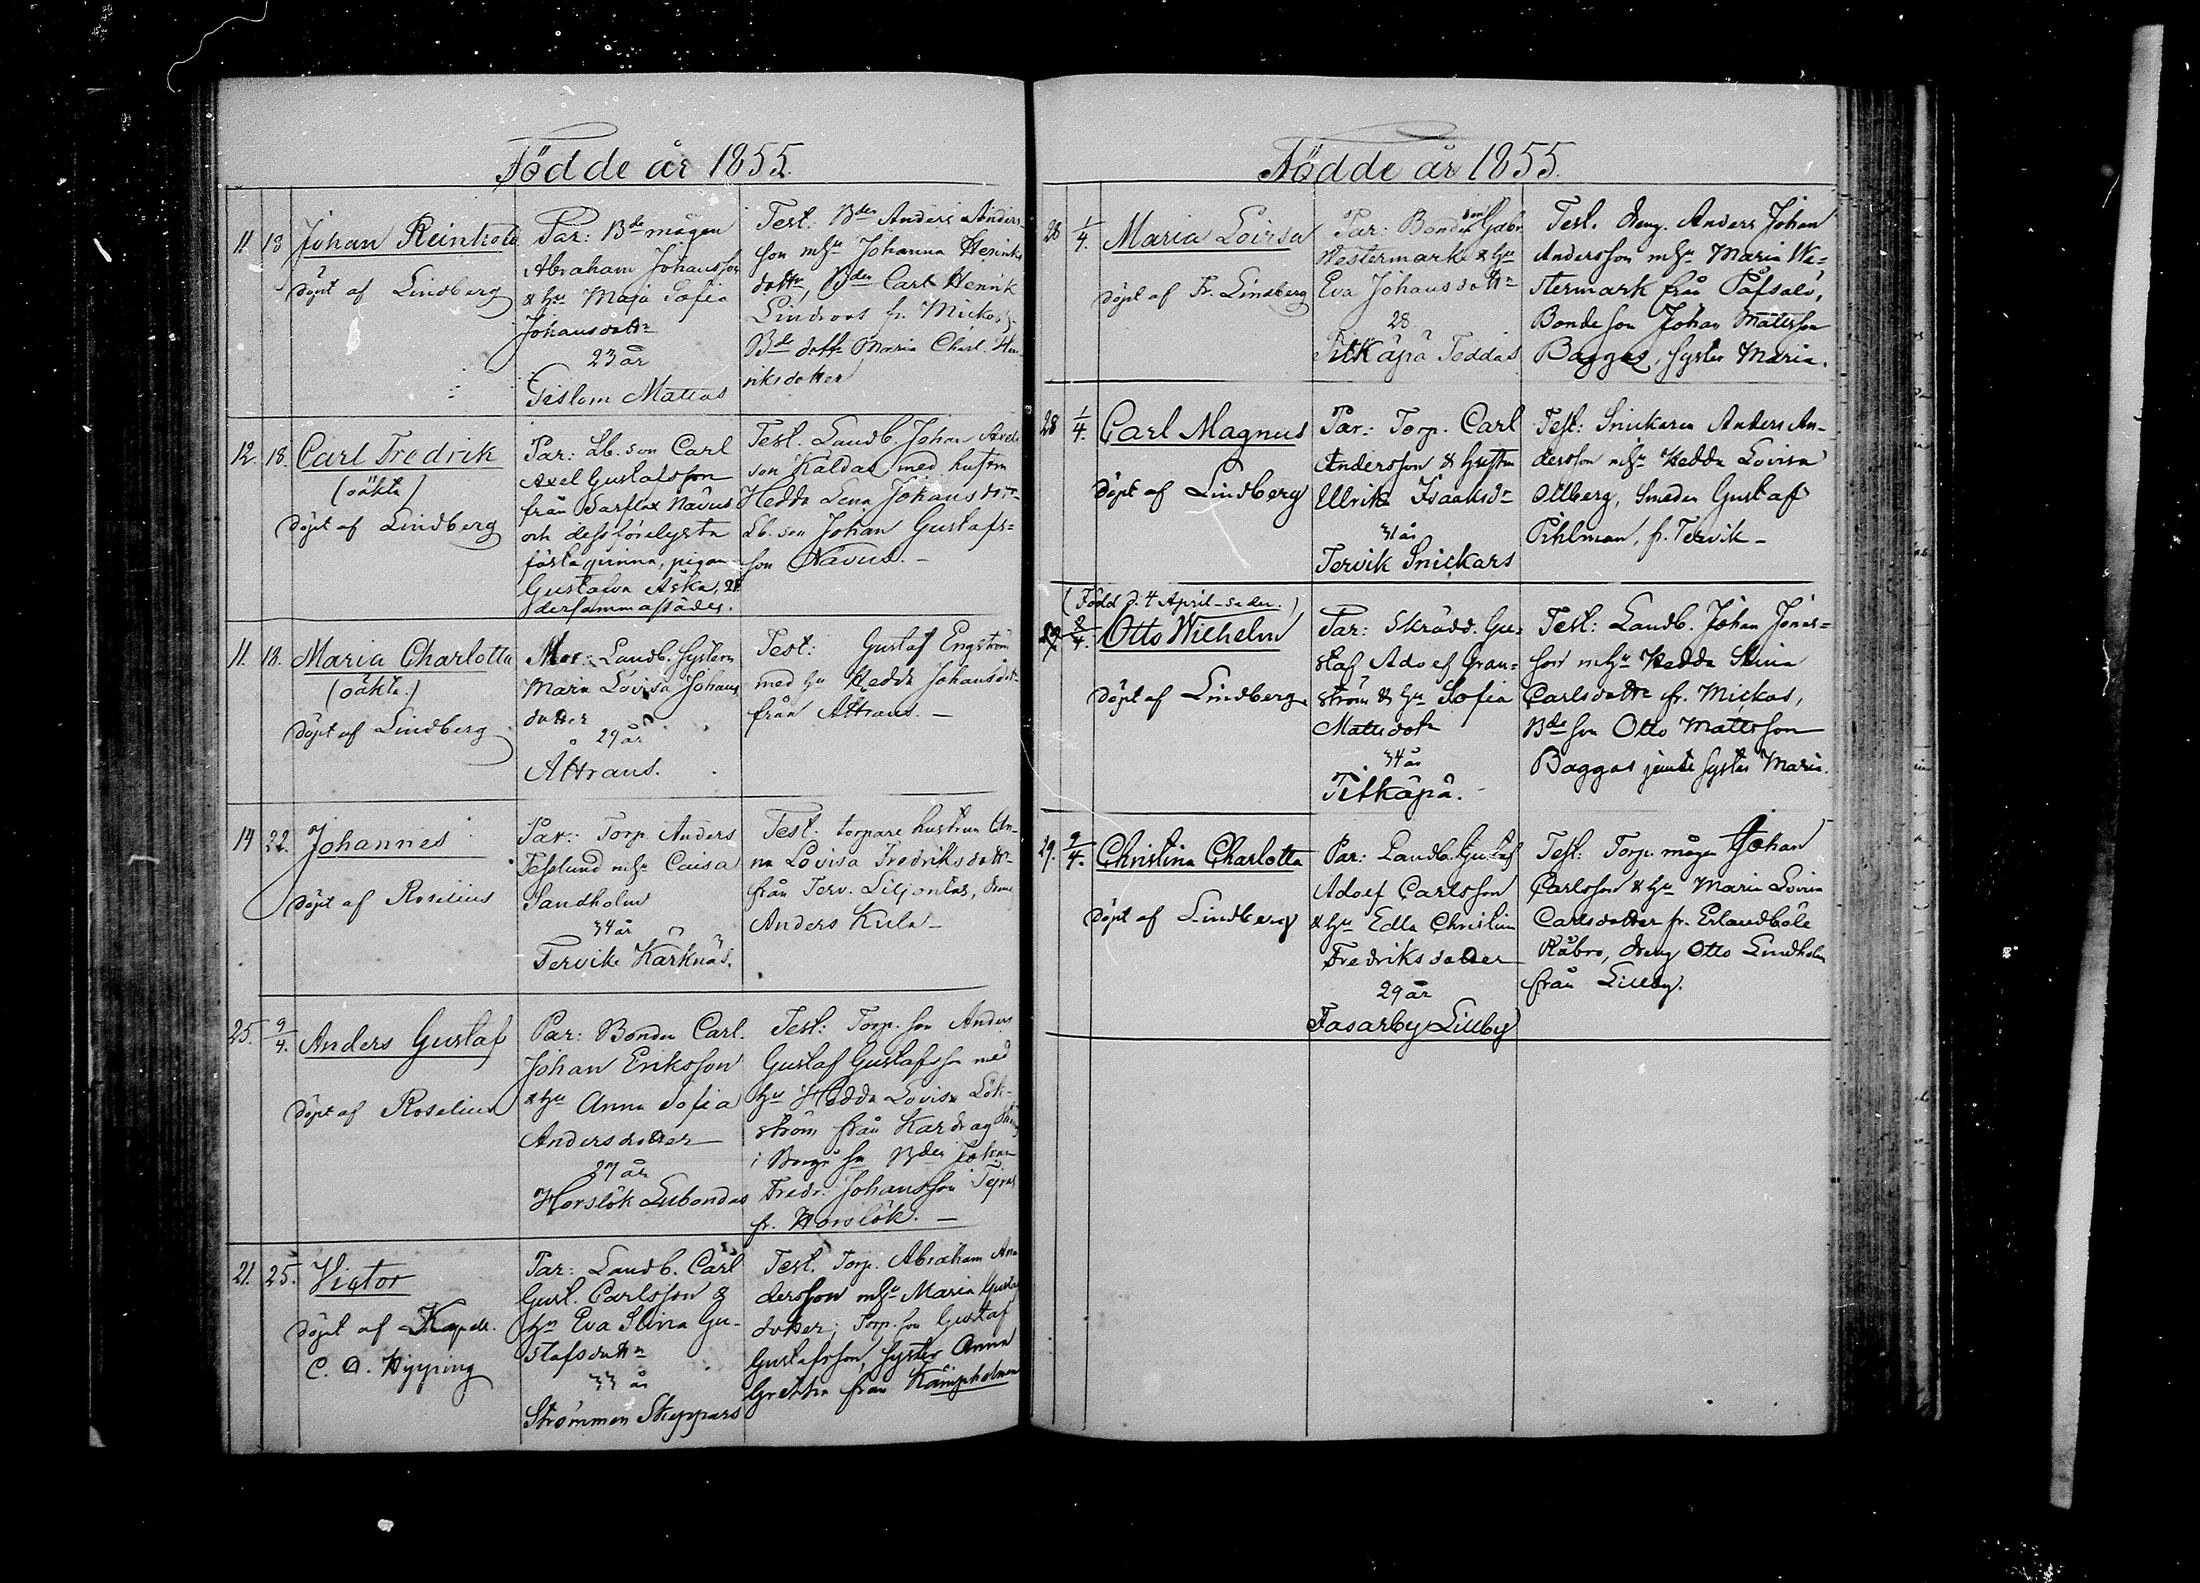 Födde år 1855.
11. 13 Johan Reinhold
döpt af Lindberg
Par: Bde mågen
Abraham Johansson
& hu Maja Sofia
Johansdottr
23 år
Gislom Mattas
Test. Bden Anders Anders-
son mhu Johanna Henriks
dottr, Bden Carl Henrik
Lindroos fr. Mickos,
Bde dottr Maria Charl. Hen-
riksdotter
12. 18. Carl Fredrik
(oäkta)
döpt af Lindberg
Par: Lb. son Carl
Axel Gustafsson
från Sarflax Nävus
och dess föregifna
fästeqvinna, pigan
Gustava Aska, 21
dersammastädes.
Test. Landb. Johan Axels
son Käldas, med hustru
Hedda Lena Johansdotr
Lb. son Johan Gustafs=
son Nävus. –
11. 18. Maria Charlotta
(oäkta.)
döpt af Lindberg
Mor: Landb. System
Maria Lovisa Johans
dotter
29 år
Åttrans.
Test: Gustaf Engström
med hu Hedda Johansdotr
från Åttrans. –
14 22. Johannes
döpt af Roselius
Par: Torp. Anders
Tesslund mhu Caisa
Sandholm
34 år
Tervik Karknäs.
Test: torpare hustrun An-
na Lovisa Fredriksdottr
från Terv. Liljontas, dräng
Anders Kula –
25. 9/4. Anders Gustaf
döpt af Roselius
Par: Bonden Carl
Johan Eriksson
& hu Anna Sofia
Andersdotter
27 år
Horslök Lubondas
Test: Torp. son Anders
Gustaf Gustafsson med
hu Hedda Lovisa Lök-
ström från Kardrag
i Borgå sn Bden Johan
Fredr. Johansson Tejras
fr. Horslök. –
21. 25. Victor
döpt af Kapell.
C. A. Hipping
Par: Landb. Carl
Gust. Carlsson &
hu Eva Stina Gu-
stafsdottr
33 år
Strömmen Skeppars
Test. Torp. Abraham An-
dersson mhu Maria Gustafs
dotter; Torp. son Gustaf
Gustafsson, syster Anna
Gretha från Kämpholmen
Födde år 1855.
28 1/4. Maria Lovisa
döpt af Fr. Lindberg
Par: Bondesson Gabr.
Westermark & hu
Eva Johansdottr
28
Pitkäpä Toddas
Test. dreng. Anders Johan
Andersson mhu Maria We=
stermark från Påfsalö,
Bonde son Johan Mattsson
Baggas, syster Maria.
28 1/4. Carl Magnus
döpt af Lindberg
Par: Torp. Carl
Andersson & hustru
Ulrika Isaksdr
31 år
Tervik Snickars
Test: Snickaren Anders An-
dersson mhu Hedda Lovisa
Ollberg, Smeden Gustaf
Pihlman, fr. Tervik –
(Född d. 4 April – se der.)
27 8/4. Otto Wilhelm
döpt af Lindberg
Par: Skrädd. Gu=
staf Adolf Gran=
ström & hu Sofia
Mattsdotr
34 år
Pitkäpä.
Test: Landb. Johan Jöns=
son mhu Hedda Stina
Carlsdottr fr. Mickas,
Bde son Otto Mattsson
Baggas jemte syster Maria.
29. 9/4. Christina Charlotta
döpt af Lindberg
Par: Landb. Gustaf
Adolf Carlsson
& hu Edla Christina
Fredriksdotter
29 år
Fasarby Lillby
Test: Torp. mågen Johan
Carlsson & hu Maria Lovisa
Carlsdotter fr. Erlandböle
Råbro, dreng Otto Lindholm
från Lillby.